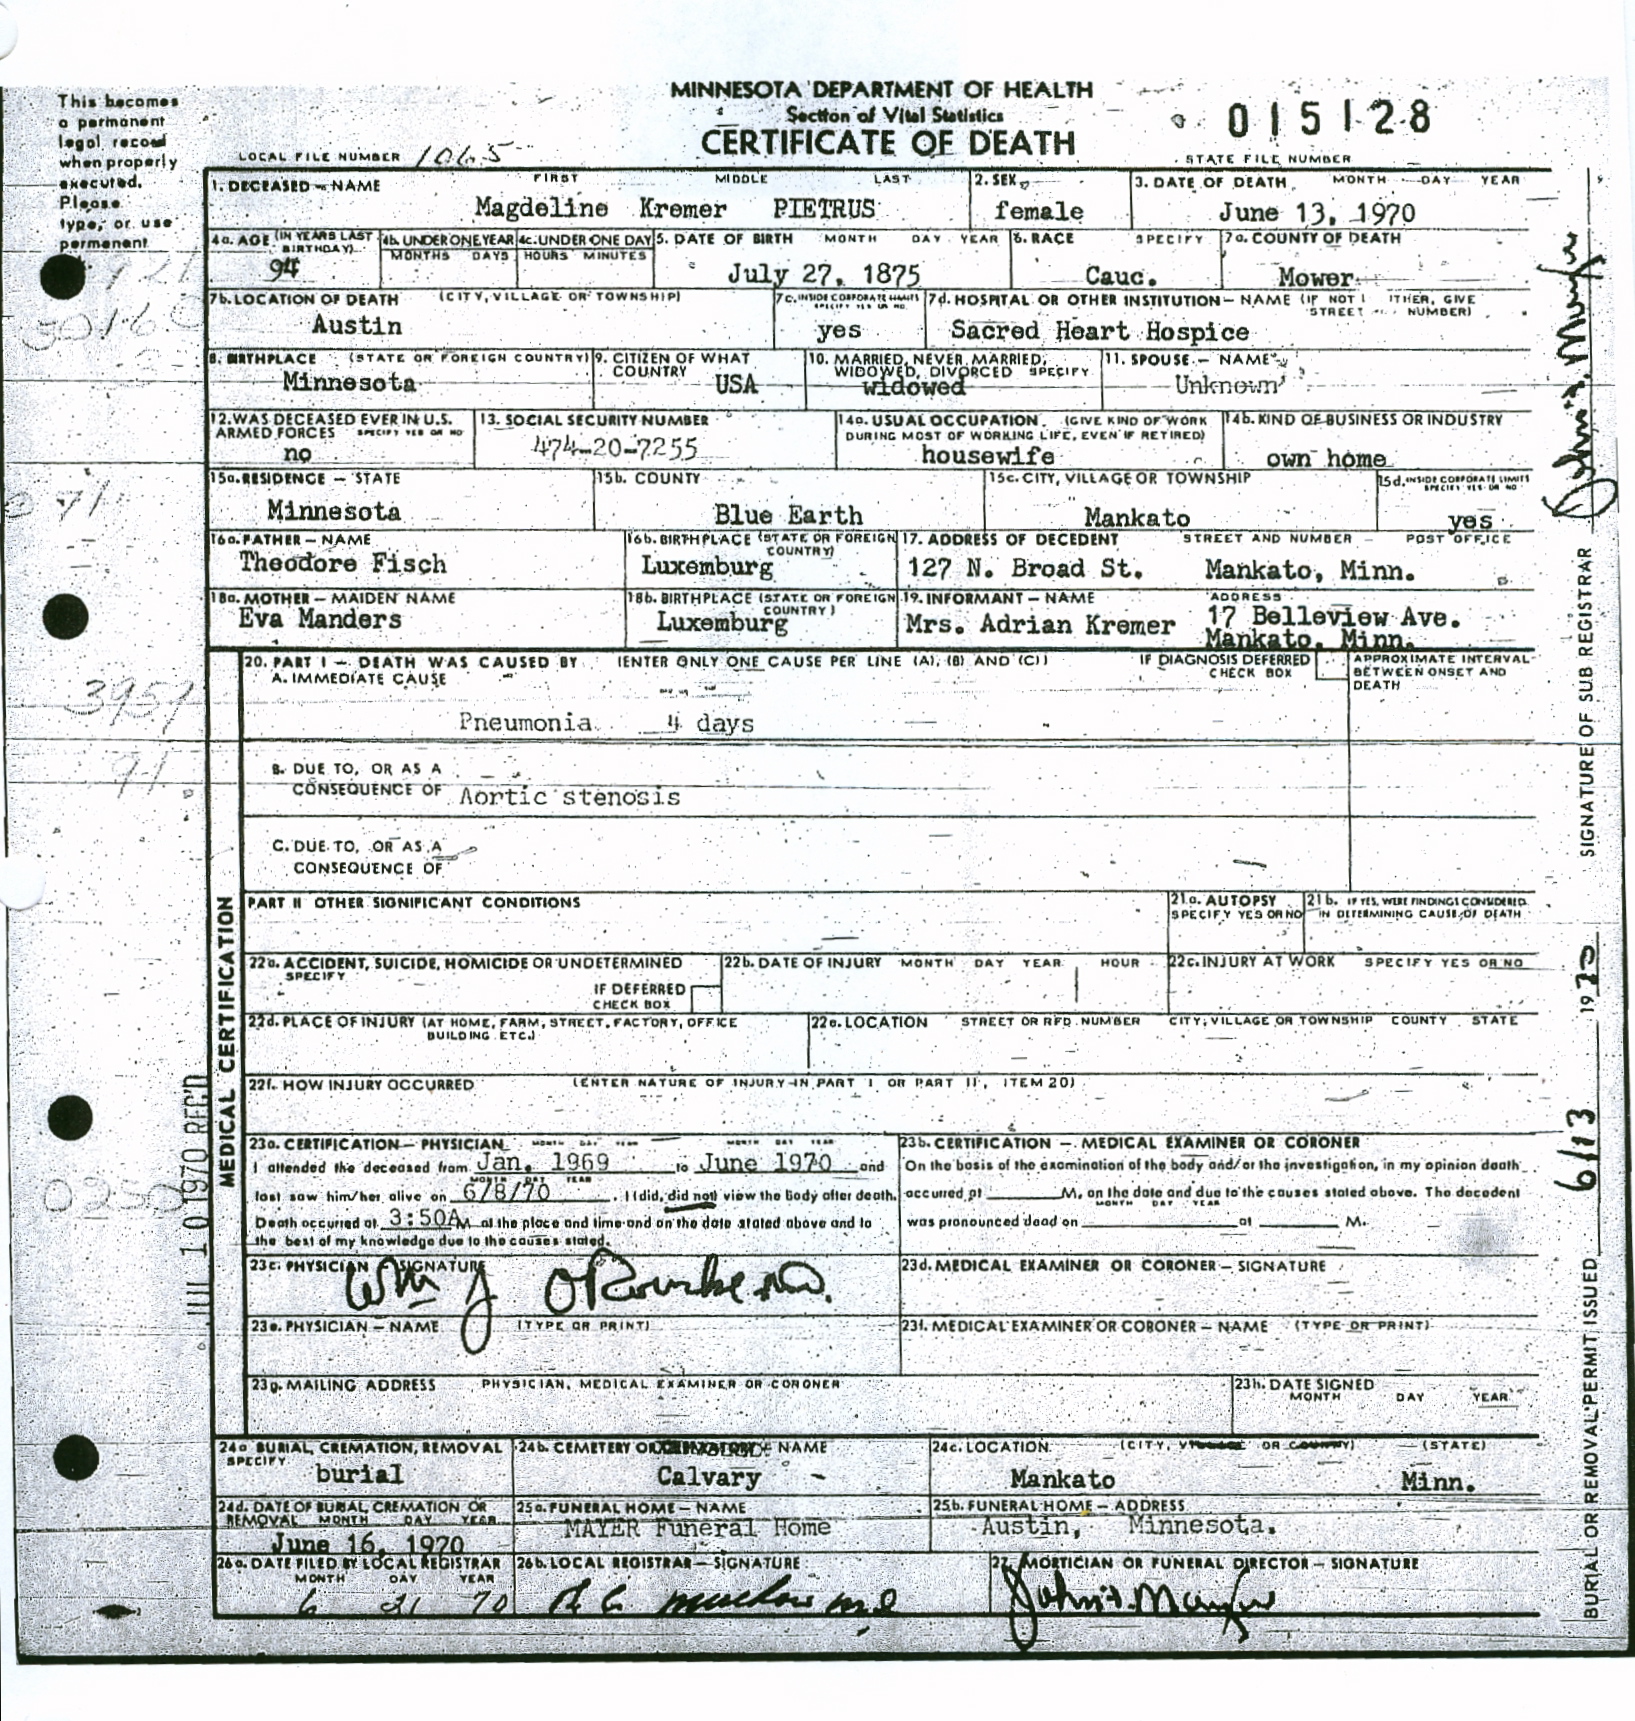 This becomes
a permanent
legal record
when properly
executed.
Please
type, or use
permanent
MINNESOTA DEPARTMENT OF HEALTH
Section of Vital Statistics
CERTIFICATE OF DEATH
015128
STATE FILE NUMBER
LOCAL FILE NUMBER 1065
1. DECEASED — NAME FIRST MIDDLE LAST
Magdeline Kremer PIETRUS
2. SEX
female
3. DATE OF DEATH MONTH DAY YEAR
June 13, 1970
4a. AGE (IN YEARS LAST BIRTHDAY)
94
4b. UNDER ONE YEAR
MONTHS DAYS
4c. UNDER ONE DAY
HOURS MINUTES
5. DATE OF BIRTH MONTH DAY YEAR
July 27, 1875
6. RACE SPECIFY
Cauc.
7a. COUNTY OF DEATH
Mower
7b. LOCATION OF DEATH (CITY, VILLAGE OR TOWNSHIP)
Austin
7c. INSIDE CORPORATE LIMITS
SPECIFY YES OR NO
yes
7d. HOSPITAL OR OTHER INSTITUTION — NAME (IF NOT I ITHER, GIVE
STREET NUMBER)
Sacred Heart Hospice
8. BIRTHPLACE (STATE OR FOREIGN COUNTRY)
Minnesota
9. CITIZEN OF WHAT
COUNTRY
USA
10. MARRIED, NEVER MARRIED,
WIDOWED, DIVORCED SPECIFY
widowed
11. SPOUSE — NAME
Unknown
12. WAS DECEASED EVER IN U.S.
ARMED FORCES SPECIFY YES OR NO
no
13. SOCIAL SECURITY NUMBER
474-20-7255
14a. USUAL OCCUPATION (GIVE KIND OF WORK
DURING MOST OF WORKING LIFE, EVEN IF RETIRED)
housewife
14b. KIND OF BUSINESS OR INDUSTRY
own home
15a. RESIDENCE — STATE
Minnesota
15b. COUNTY
Blue Earth
15c. CITY, VILLAGE OR TOWNSHIP
Mankato
15d. INSIDE CORPORATE LIMITS
SPECIFY YES OR NO
yes
16a. FATHER — NAME
Theodore Fisch
16b. BIRTHPLACE (STATE OR FOREIGN
COUNTRY)
Luxemburg
17. ADDRESS OF DECEDENT STREET AND NUMBER — POST OFFICE
127 N. Broad St. Mankato, Minn.
18a. MOTHER — MAIDEN NAME
Eva Manders
18b. BIRTHPLACE (STATE OR FOREIGN
COUNTRY)
Luxemburg
19. INFORMANT — NAME ADDRESS
Mrs. Adrian Kremer 17 Belleview Ave.
Mankato, Minn.
MEDICAL CERTIFICATION
20. PART I — DEATH WAS CAUSED BY (ENTER ONLY ONE CAUSE PER LINE (A), (B) AND (C))
IF DIAGNOSIS DEFERRED
CHECK BOX
APPROXIMATE INTERVAL
BETWEEN ONSET AND
DEATH
A. IMMEDIATE CAUSE
Pneumonia 4 days
B. DUE TO, OR AS A
CONSEQUENCE OF Aortic stenosis
C. DUE TO, OR AS A
CONSEQUENCE OF
PART II OTHER SIGNIFICANT CONDITIONS
21a. AUTOPSY
SPECIFY YES OR NO
21b. IF YES, WERE FINDINGS CONSIDERED
IN DETERMINING CAUSE OF DEATH
22a. ACCIDENT, SUICIDE, HOMICIDE OR UNDETERMINED
SPECIFY
IF DEFERRED
CHECK BOX
22b. DATE OF INJURY MONTH DAY YEAR HOUR
22c. INJURY AT WORK SPECIFY YES OR NO
22d. PLACE OF INJURY (AT HOME, FARM, STREET, FACTORY, OFFICE
BUILDING ETC.)
22e. LOCATION STREET OR RFD NUMBER CITY, VILLAGE OR TOWNSHIP COUNTY STATE
22f. HOW INJURY OCCURRED (ENTER NATURE OF INJURY IN PART I OR PART II, ITEM 20)
23a. CERTIFICATION — PHYSICIAN MONTH DAY YEAR MONTH DAY YEAR
I attended the deceased from Jan. 1969 to June 1970 and
MONTH DAY YEAR
last saw him/her alive on 6/8/70. I (did, did not) view the body after death.
Death occurred at 3:50A M. at the place and time and on the date stated above and to
the best of my knowledge due to the causes stated.
23b. CERTIFICATION — MEDICAL EXAMINER OR CORONER
On the basis of the examination of the body and/or the investigation, in my opinion death
occurred at M. on the date and due to the causes stated above. The decedent
MONTH DAY YEAR
was pronounced dead on at M.
23c. PHYSICIAN SIGNATURE
Wm J O'Rourke M.D.
23d. MEDICAL EXAMINER OR CORONER — SIGNATURE
23e. PHYSICIAN — NAME (TYPE OR PRINT)
23f. MEDICAL EXAMINER OR CORONER — NAME (TYPE OR PRINT)
23g. MAILING ADDRESS PHYSICIAN, MEDICAL EXAMINER OR CORONER
23h. DATE SIGNED
MONTH DAY YEAR
24a BURIAL, CREMATION, REMOVAL
SPECIFY
burial
24b. CEMETERY OR NAME
Calvary
24c. LOCATION (CITY, VILLAGE OR COUNTY) (STATE)
Mankato Minn.
24d. DATE OF BURIAL, CREMATION OR
REMOVAL MONTH DAY YEAR
June 16, 1970
25a. FUNERAL HOME — NAME
MAYER Funeral Home
25b. FUNERAL HOME — ADDRESS
Austin, Minnesota.
26a. DATE FILED BY LOCAL REGISTRAR
MONTH DAY YEAR
6 21 70
26b. LOCAL REGISTRAR — SIGNATURE
27. MORTICIAN OR FUNERAL DIRECTOR — SIGNATURE
JUL 10 1970 REC'D
SIGNATURE OF SUB REGISTRAR
BURIAL OR REMOVAL PERMIT ISSUED 6/13 1970